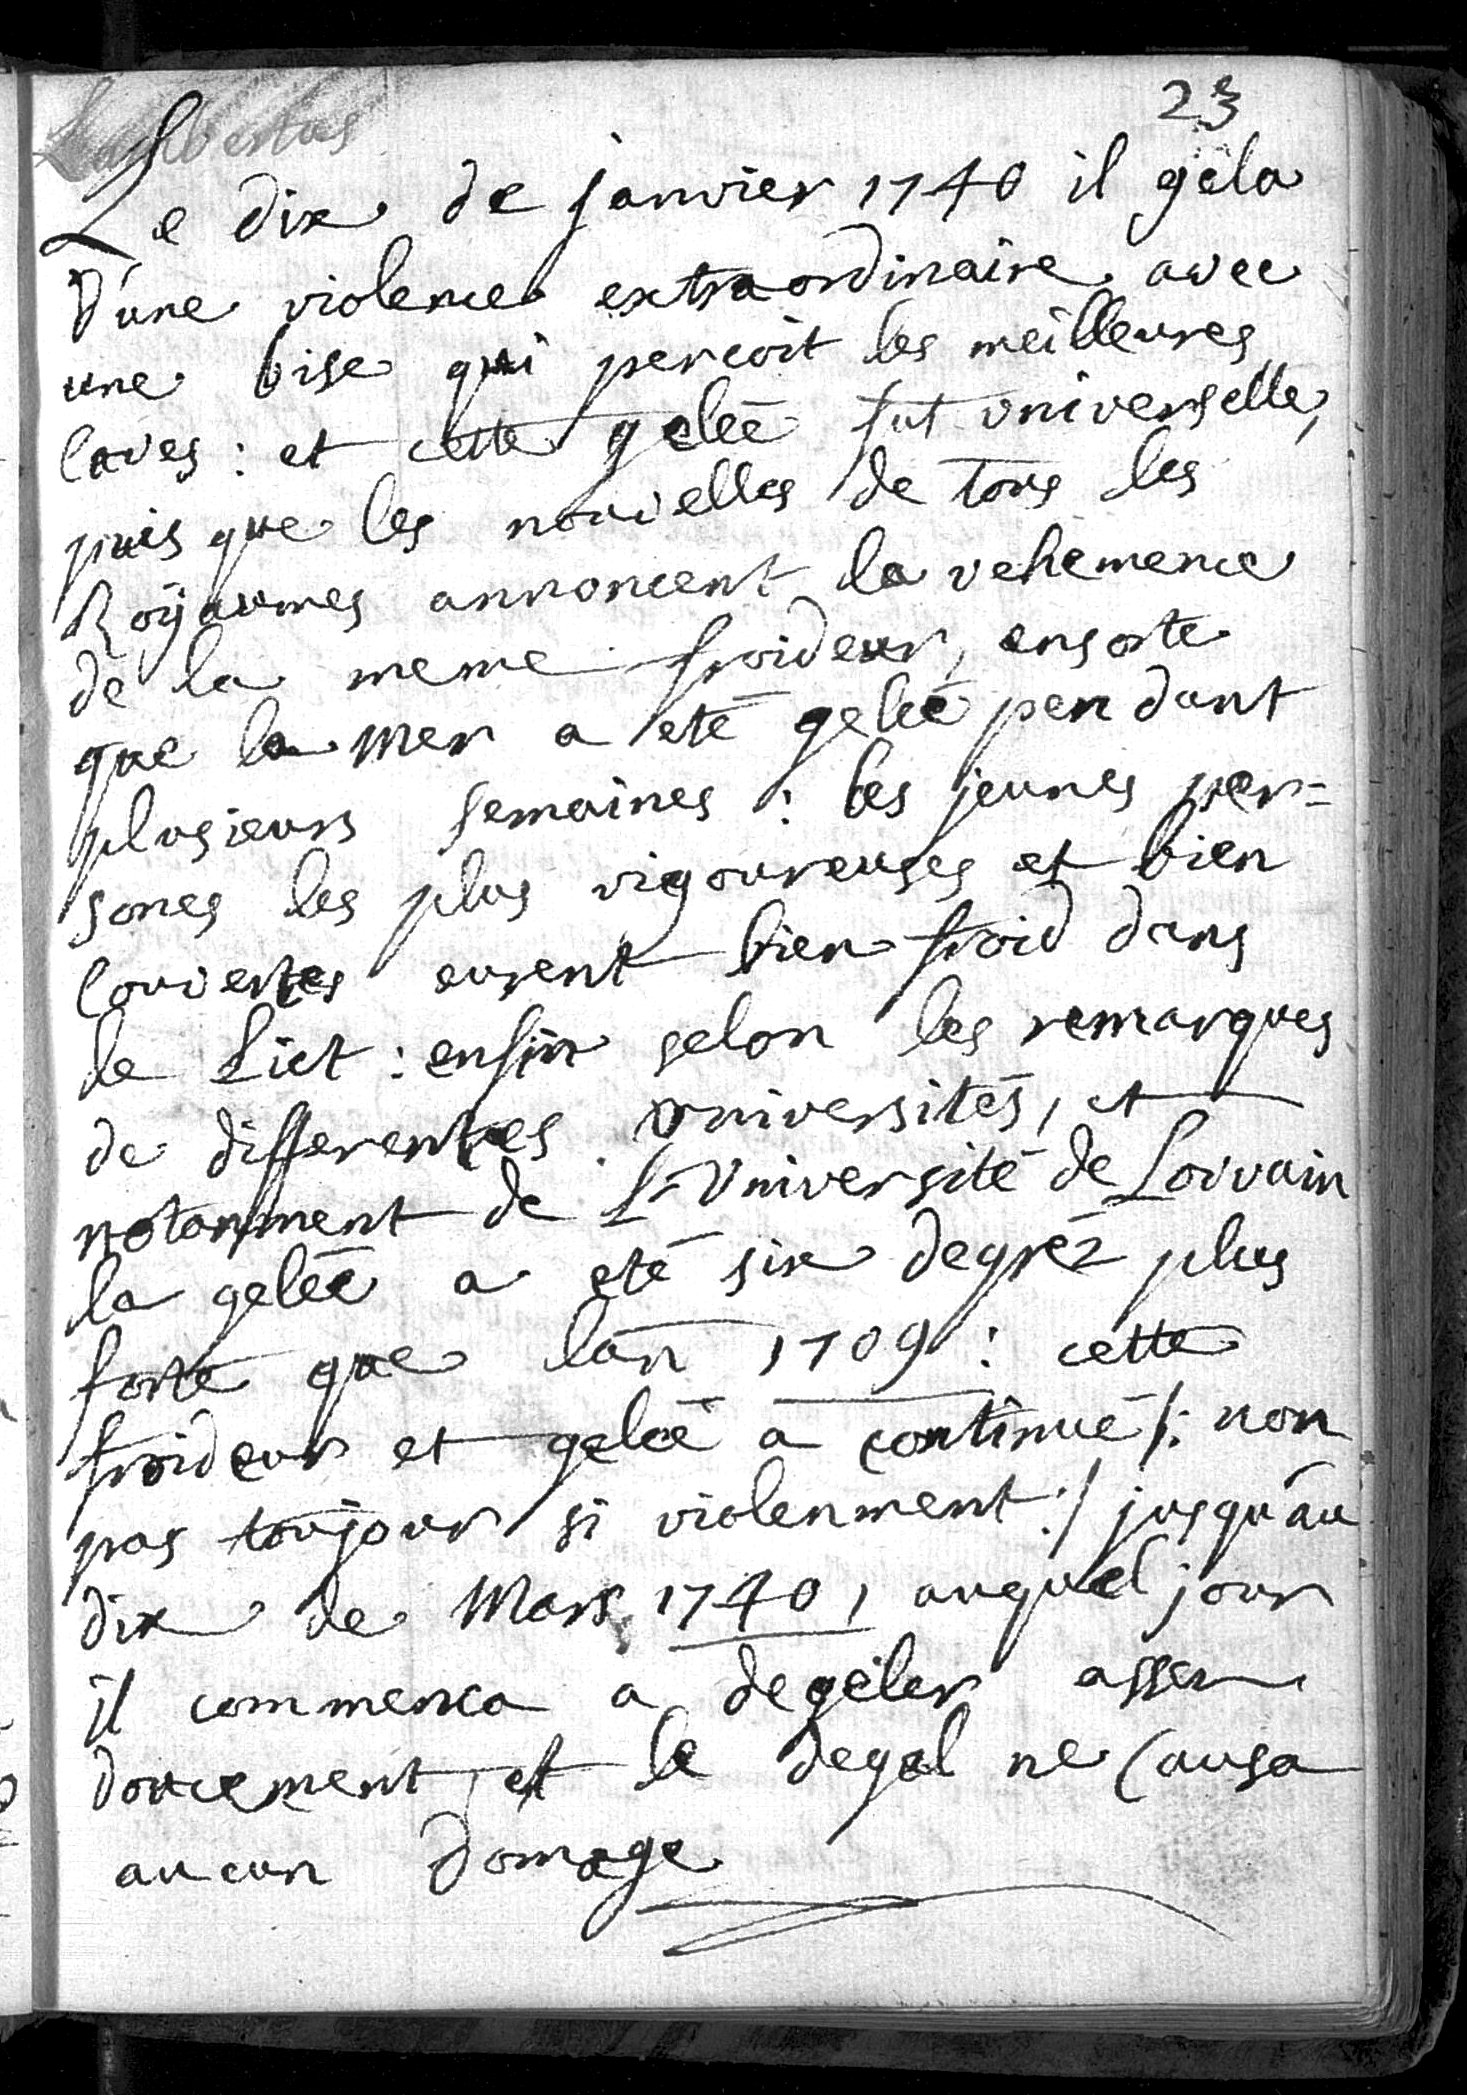 23
Lambertus
Le dix de janvier 1740 il gela
d'une violence extraordinaire avec
une bise qui percoit les meilleures
caves : et cette geleé fut universelle,
puis que les nouvelles de tous les
Royaumes annoncent la vehemence
de la meme froideur, ensorte
que la mer a eté geleé pendant
plusieurs semaines : les jeunes per=
sones les plus vigoureuses et bien
couvertes eurent bien froid dans
le Lict : enfin selon les remarques
de differentes universités, et
notanment de L'Université de Louvain
la geleé a eté six degréz plus
forte que lan 1709 : cette
froideur et geleé a continué /: non
pas toujour si violenment :/ jusqu'au
dix de Mars 1740, auquel jour
il commenca a degeler assez
doucement, et le degel ne causa
aucun domage